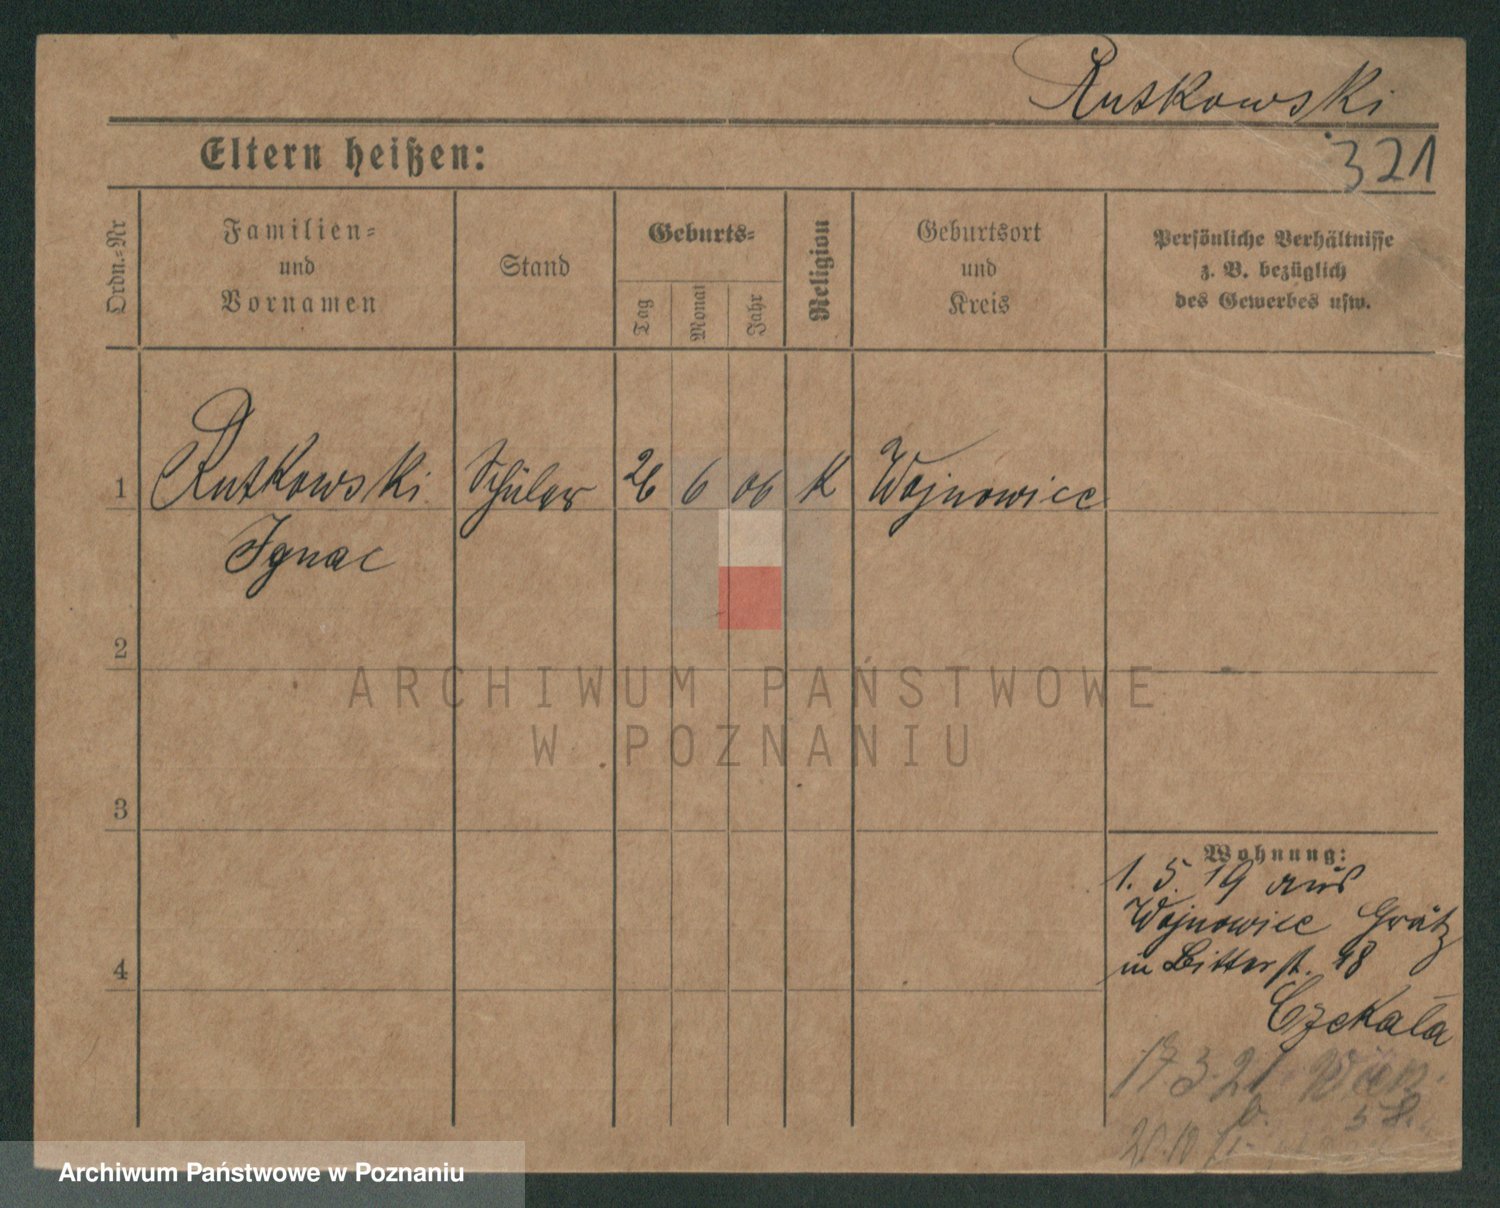 Rutkowski
321
Eltern heißen:
Ordn.-Nr
Familien-
und
Vornamen
Stand
Geburts-
Tag
Monat
Jahr
Religion
Geburtsort
und
Kreis
Persönliche Verhältnisse
z. B. bezüglich
des Gewerbes usw.
1 Rutkowski Schüler 26 6 06 K Wojnowice
Ignac
2
ARCHIWUM PAŃSTWOWE
W POZNANIU
3
Wohnung:
1. 5. 19 aus
Wojnowice Grätz
in Bitterst. 18
4
Czekala
17 3. 21
Archiwum Państwowe w Poznaniu